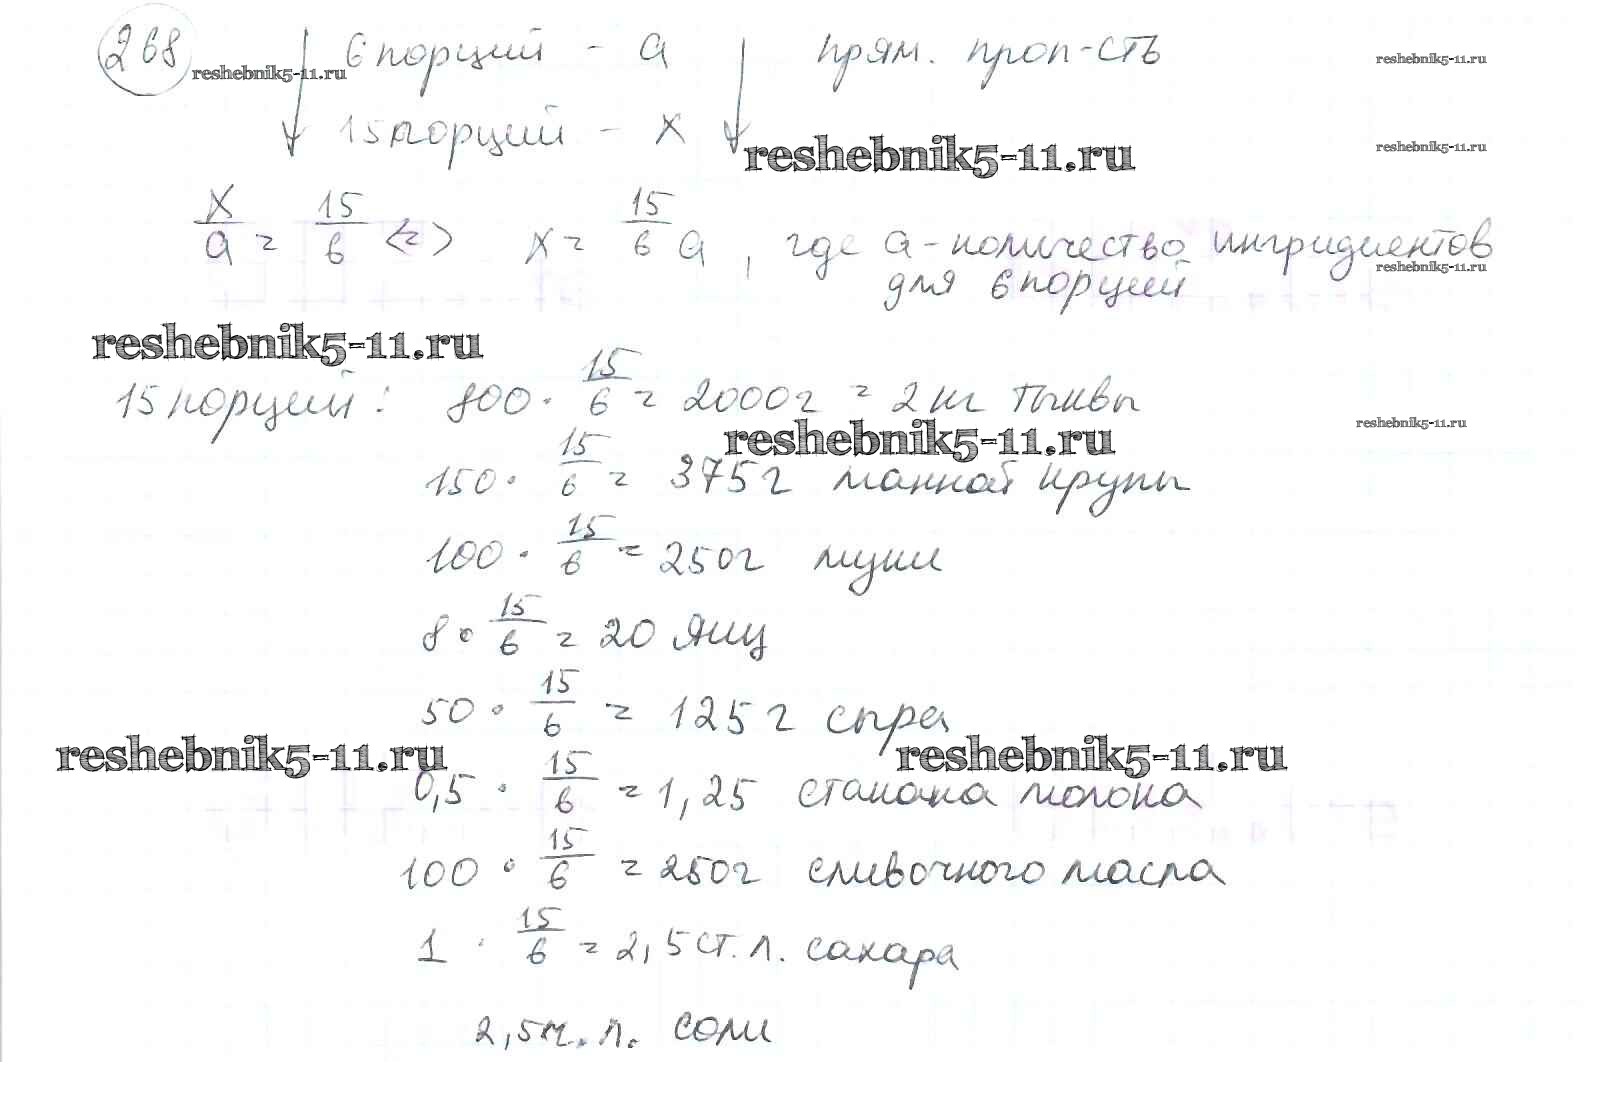 268 6 порций - а прям. проп-сть
reshebnik5-11.ru reshebnik5-11.ru
15 порций - х
reshebnik5-11.ru reshebnik5-11.ru
х/а = 15/6 <=> х = 15/6 а, где а - количество ингридиентов
для 6 порций
reshebnik5-11.ru
reshebnik5-11.ru
15 порций: 800 · 15/6 = 2000г = 2 кг тыквы
reshebnik5-11.ru reshebnik5-11.ru
150 · 15/6 = 375г манной крупы
100 · 15/6 = 250г муки
8 · 15/6 = 20 яиц
50 · 15/6 = 125г сыра
reshebnik5-11.ru reshebnik5-11.ru
0,5 · 15/6 = 1,25 стакана молока
100 · 15/6 = 250г сливочного масла
1 · 15/6 = 2,5 ст. л. сахара
2,5 ч. л. соли